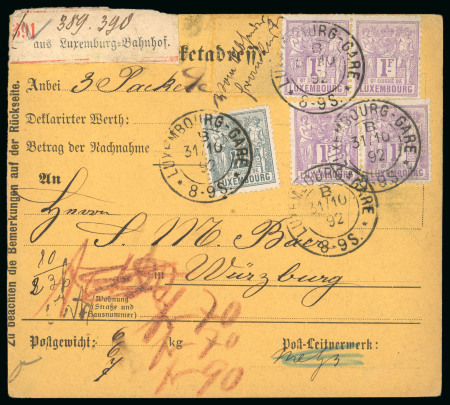 389.390
191
aus Luxemburg-Bahnhof.
ketadresse
Anbei 3 Packete
Deklarirter Werth:
Betrag der Nachnahme
An
Herrn S. M. Baer
in Würzburg
Wohnung
(Straße und
Hausnummer)
Postgewicht: kg
Post-Leitvermerk:
Metz
Zu beachten die Bemerkungen auf der Rückseite.
1 F
1 F
LUXEMBOURG
LUXEMBOURG-GARE
B
31/10
92
8-9S.
LUXEMBOURG-GARE
B
31/10
92
8-9S.
LUXEMBOURG-GARE
B
31/10
92
8-9S.
LUXEMBOURG-GARE
B
31/10
92
8-9S.
-70
-70
-90